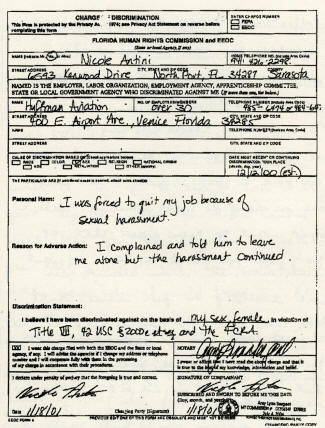 CHARGE OF DISCRIMINATION
ENTER CHARGE NUMBER
This form is affected by the Privacy Act of 1974; see Privacy Act Statement on reverse before
completing this form
FEPA
EEOC
FLORIDA HUMAN RIGHTS COMMISSION and EEOC
(State or local Agency, if any)
NAME (Indicate Mr., Ms., or Mrs.)
HOME TELEPHONE NO. (Include Area Code)
Nicole Antini
941 426
STREET ADDRESS CITY, STATE AND ZIP CODE COUNTY
Kenwood Drive North Port, FL 34287 Sarasota
NAMED IS THE EMPLOYER, LABOR ORGANIZATION, EMPLOYMENT AGENCY, APPRENTICESHIP COMMITTEE,
STATE OR LOCAL GOVERNMENT AGENCY WHO DISCRIMINATED AGAINST ME (If more than one, list below.)
NAME NO. OF EMPLOYEES/MEMBERS TELEPHONE NUMBER (Include Area Code)
Huffman Aviation Over 30
STREET ADDRESS CITY, STATE AND ZIP CODE
400 E. Airport Ave, Venice Florida 34285
NAME TELEPHONE NUMBER (Include Area Code)
STREET ADDRESS CITY, STATE AND ZIP CODE
CAUSE OF DISCRIMINATION BASED ON
RACE COLOR SEX RELIGION NATIONAL ORIGIN
AGE RETALIATION OTHER
DATE MOST RECENT OR CONTINUING
DISCRIMINATION TOOK PLACE
(Month, day, year)
12/12/00 (est.)
THE PARTICULARS ARE
Personal Harm: I was forced to quit my job because of
sexual harassment.
Reason for Adverse Action: I complained and told him to leave
me alone but the harassment continued.
Discrimination Statement:
I believe I have been discriminated against on the basis of my sex, female, in violation of
Title VII, 42 USC § 2000e et seq and the FCRA.
I want this charge filed with both the EEOC and the State or local
agency, if any. I will advise the agencies if I change my address or telephone
number and I will cooperate fully with them in the processing
of my charge in accordance with their procedures.
NOTARY
I swear or affirm that I have read the above charge and that it
is true to the best of my knowledge, information and belief.
I declare under penalty of perjury that the foregoing is true and correct.
SIGNATURE OF COMPLAINANT
SUBSCRIBED AND SWORN TO BEFORE ME THIS DATE
(Day, month, and year)
1/18/01 Charging Party (Signature) 1/18/01
EEOC FORM 5
PREVIOUS EDITIONS OF THIS FORM ARE OBSOLETE AND MUST NOT BE USED
CHARGING PARTY COPY